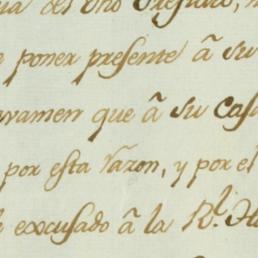 del dho
poner presente â su
avamen que â su Casa
por esta Razon, y por el
exxcusado â la R.l